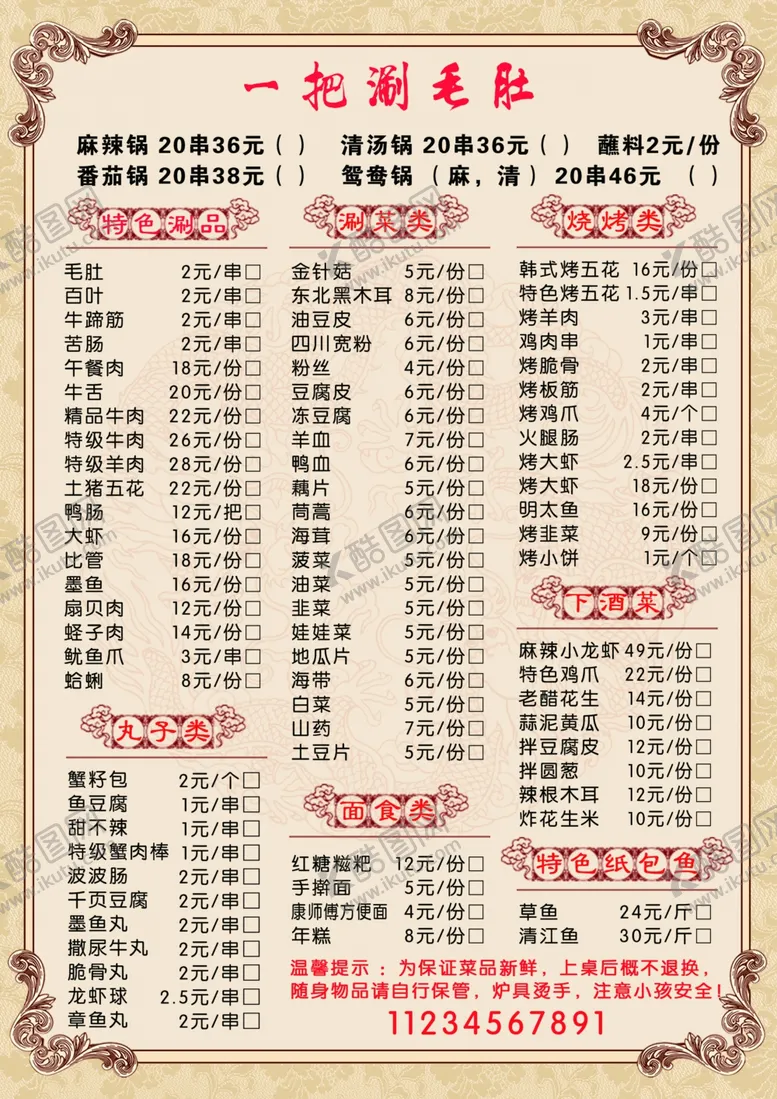 一把涮毛肚
麻辣锅 20串36元（ ） 清汤锅 20串36元（ ） 蘸料2元/份
番茄锅 20串38元（ ） 鸳鸯锅（麻，清）20串46元 （ ）
特色涮品
毛肚 2元/串□
百叶 2元/串□
牛蹄筋 2元/串□
苦肠 2元/串□
午餐肉 18元/份□
牛舌 20元/份□
精品牛肉 22元/份□
特级牛肉 26元/份□
特级羊肉 28元/份□
土猪五花 22元/份□
鸭肠 12元/把□
大虾 16元/份□
比管 18元/份□
墨鱼 16元/份□
扇贝肉 12元/份□
蛏子肉 14元/份□
鱿鱼爪 3元/串□
蛤蜊 8元/份□
丸子类
蟹籽包 2元/个□
鱼豆腐 1元/串□
甜不辣 1元/串□
特级蟹肉棒 1元/串□
波波肠 2元/串□
千页豆腐 2元/串□
墨鱼丸 2元/串□
撒尿牛丸 2元/串□
脆骨丸 2元/串□
龙虾球 2.5元/串□
章鱼丸 2元/串□
涮菜类
金针菇 5元/份□
东北黑木耳 8元/份□
油豆皮 6元/份□
四川宽粉 6元/份□
粉丝 4元/份□
豆腐皮 6元/份□
冻豆腐 6元/份□
羊血 7元/份□
鸭血 6元/份□
藕片 5元/份□
茼蒿 6元/份□
海茸 6元/份□
菠菜 5元/份□
油菜 5元/份□
韭菜 5元/份□
娃娃菜 5元/份□
地瓜片 5元/份□
海带 6元/份□
白菜 5元/份□
山药 7元/份□
土豆片 5元/份□
面食类
红糖糍粑 12元/份□
手擀面 5元/份□
康师傅方便面 4元/份□
年糕 8元/份□
烧烤类
韩式烤五花 16元/份□
特色烤五花 1.5元/串□
烤羊肉 3元/串□
鸡肉串 1元/串□
烤脆骨 2元/串□
烤板筋 2元/串□
烤鸡爪 4元/个□
火腿肠 2元/串□
烤大虾 2.5元/串□
烤大虾 18元/份□
明太鱼 16元/份□
烤韭菜 9元/份□
烤小饼 1元/个□
下酒菜
麻辣小龙虾 49元/份□
特色鸡爪 22元/份□
老醋花生 14元/份□
蒜泥黄瓜 10元/份□
拌豆腐皮 12元/份□
拌圆葱 10元/份□
辣根木耳 12元/份□
炸花生米 10元/份□
特色纸包鱼
草鱼 24元/斤□
清江鱼 30元/斤□
温馨提示：为保证菜品新鲜，上桌后概不退换，
随身物品请自行保管，炉具烫手，注意小孩安全！
11234567891
酷图网
www.ikutu.com